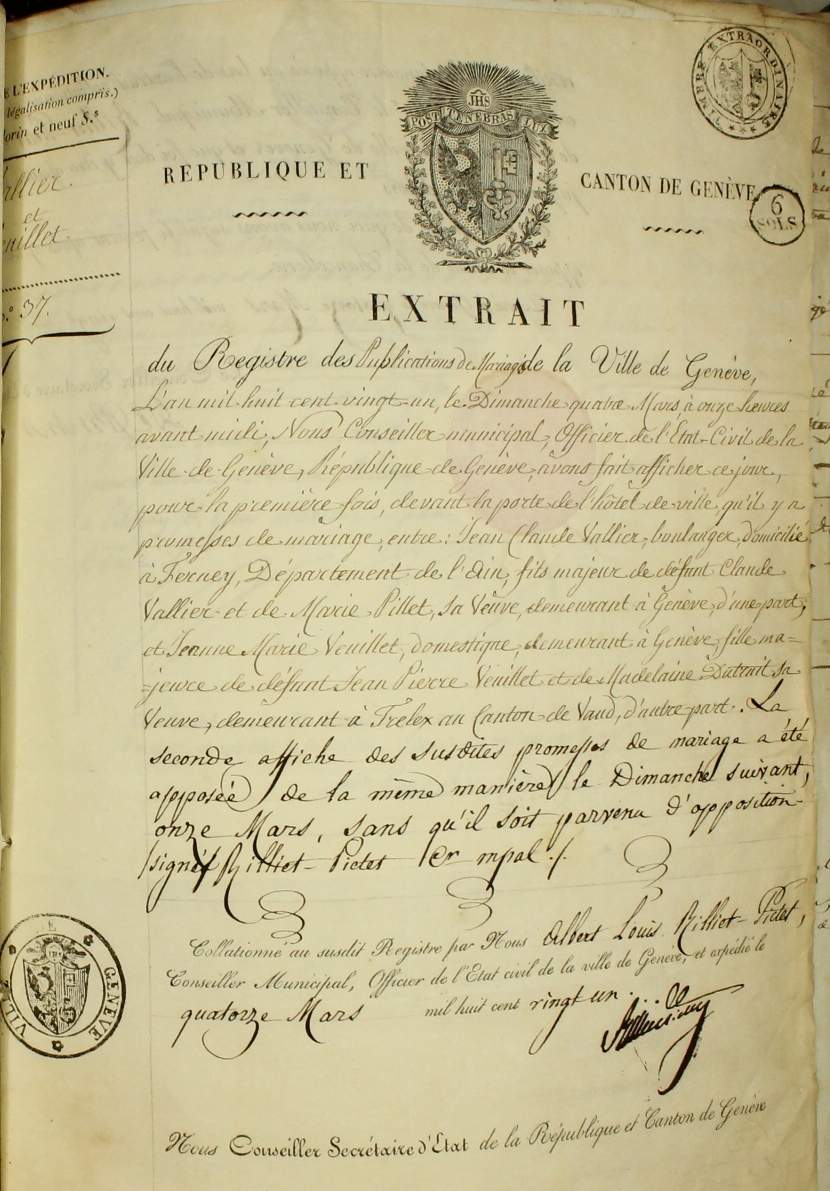 E L'EXPÉDITION.
légalisation compris.)
orin et neuf S.s
allier
et
euillet
N.o 37.
JHS
POST TENEBRAS LUX
TIMBRE EXTRAORDINAIRE
RÉPUBLIQUE ET
CANTON DE GENÈVE
6
SOLS
EXTRAIT
du Registre des Publications de Mariages de la Ville de Genève,
L'an mil huit cent vingt-un, le Dimanche quatre Mars, à onze heures
avant midi, Nous Conseiller municipal, Officier de l'Etat-Civil de la
Ville de Genève, République de Genève, avons fait afficher ce jour,
pour la première fois, devant la porte de l'hôtel de ville, qu'il y a
promesses de mariage, entre: Jean Claude Vallier, boulanger, domicilié
à Ferney, Département de l'Ain, fils majeur de défunt Claude
Vallier et de Marie Pillet, sa Veuve, demeurant à Genève, d'une part;
et Jeanne Marie Veuillet, domestique, demeurant à Genève, fille ma=
=jeure de défunt Jean Pierre Veuillet et de Madelaine Dutrait sa
Veuve, demeurant à Trélex au Canton de Vaud, d'autre part. La
seconde affiche des susdites promesses de mariage a été
apposée de la même manière le Dimanche suivant,
onze Mars, sans qu'il soit parvenu d'opposition
/signé/ Rilliet-Pictet Cer mpal./.
Collationné au susdit Registre par Nous Albert Louis Rilliet-Pictet,
Conseiller Municipal, Officier de l'Etat civil de la ville de Genève, et expédié le
quatorze Mars mil huit cent vingt un.
VILLE GENÈVE
Nous Conseiller Secrétaire d'Etat de la République et Canton de Genève